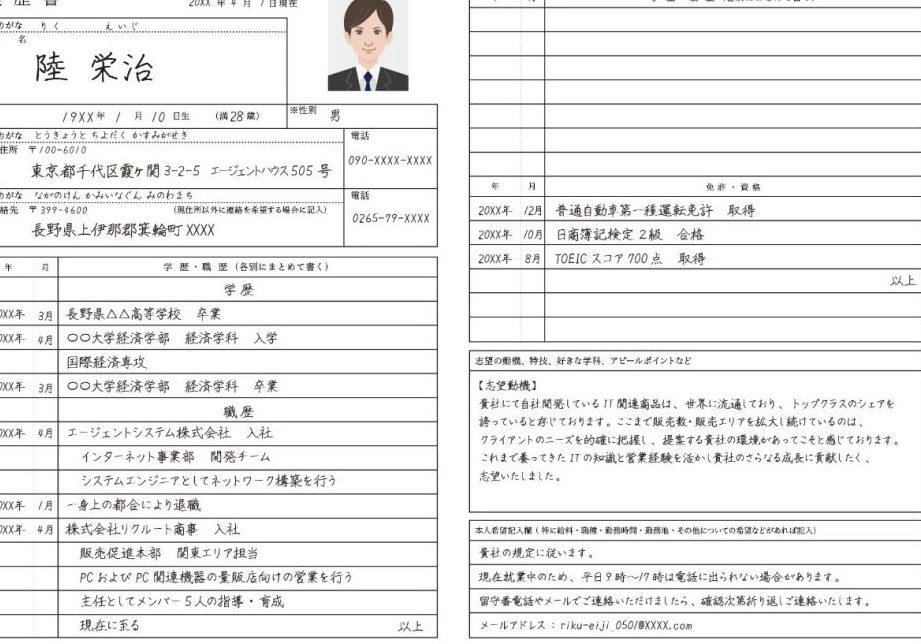 歴 書
20XX 年 4 月 1 日現在
りがな りく えいじ
名
陸 栄治
19XX 年 1 月 10 日生 (満 28 歳)
※性別 男
りがな とうきょうと ちよだく かすみがせき
電話
住所 〒100-6010
090-XXXX-XXXX
東京都千代区霞ヶ関 3-2-5 エージェントハウス 505 号
りがな ながのけん かみいなぐん みのわまち
電話
絡先 〒399-4600 (現住所以外に連絡を希望する場合に記入)
0265-79-XXXX
長野県上伊那郡箕輪町 XXXX
年 月 学 歴・職 歴 (各別にまとめて書く)
学 歴
0XX年 3月 長野県△△高等学校 卒業
0XX年 4月 〇〇大学経済学部 経済学科 入学
国際経済専攻
0XX年 3月 〇〇大学経済学部 経済学科 卒業
職 歴
0XX年 4月 エージェントシステム株式会社 入社
インターネット事業部 開発チーム
システムエンジニアとしてネットワーク構築を行う
0XX年 1月 一身上の都合により退職
0XX年 4月 株式会社リクルート商事 入社
販売促進本部 関東エリア担当
PC および PC 関連機器の量販店向けの営業を行う
主任としてメンバー 5 人の指導・育成
現在に至る 以上
年 月 免 許・資 格
20XX年 12月 普通自動車第一種運転免許 取得
20XX年 10月 日商簿記検定 2 級 合格
20XX年 8月 TOEIC スコア 700 点 取得
以上
志望の動機、特技、好きな学科、アピールポイントなど
【志望動機】
貴社にて自社開発している IT 関連商品は、世界に流通しており、トップクラスのシェアを
誇っていると存じております。ここまで販売数・販売エリアを拡大し続けているのは、
クライアントのニーズを的確に把握し、提案する貴社の環境があってこそと感じております。
これまで養ってきた IT の知識と営業経験を活かし貴社のさらなる成長に貢献したく、
志望いたしました。
本人希望記入欄 ( 特に給料・職種・勤務時間・勤務地・その他についての希望などがあれば記入)
貴社の規定に従います。
現在就業中のため、平日 9 時～17 時は電話に出られない場合があります。
留守番電話やメールでご連絡いただけましたら、確認次第折り返しご連絡いたします。
メールアドレス : riku-eiji_0501@XXXX.com